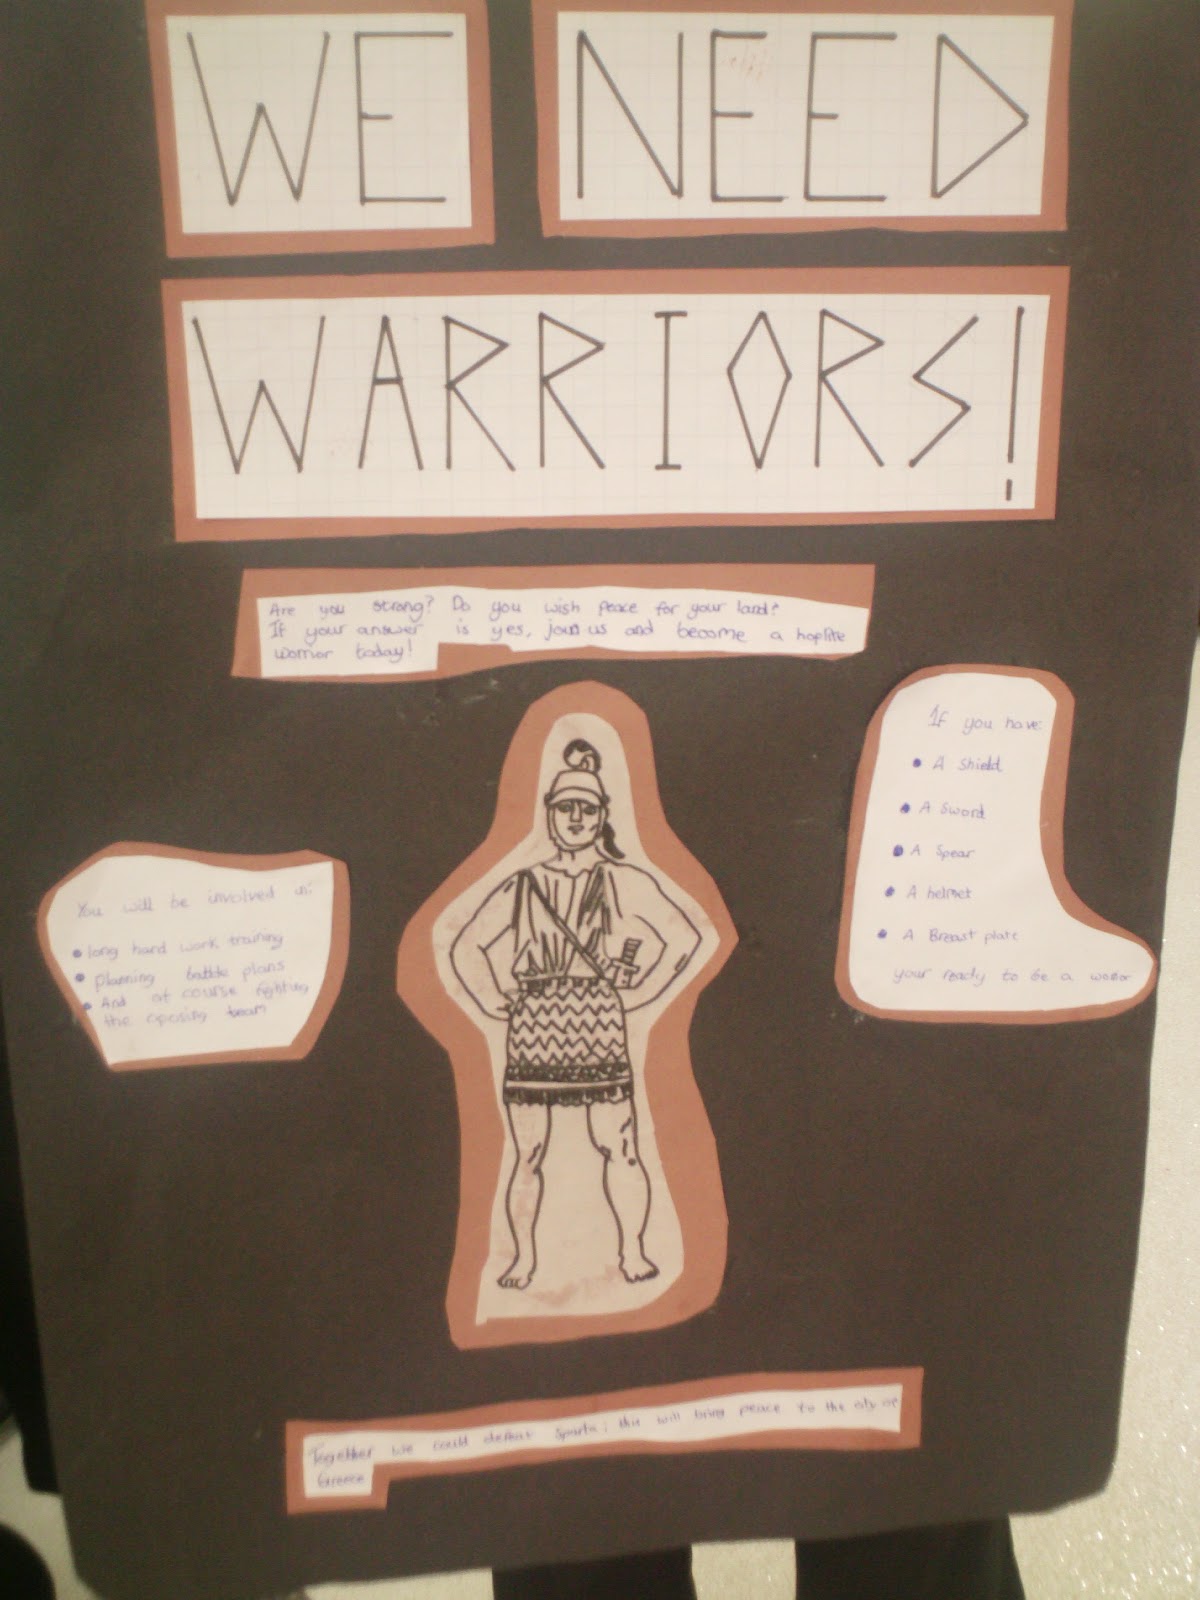 WE NEED
WARRIORS!
Are you strong? Do you wish peace for your land?
If your answer is yes, join us and become a hoplite
worrior today!
You will be involved in:
• long hard work training
• planning battle plans
• And of course fighting
the oposing team
If you have:
• A Shield
• A Sword
• A Spear
• A helmet
• A Breast plate
your ready to be a
Together we could defeat Sparta; this will bring peace to the city of
Greece